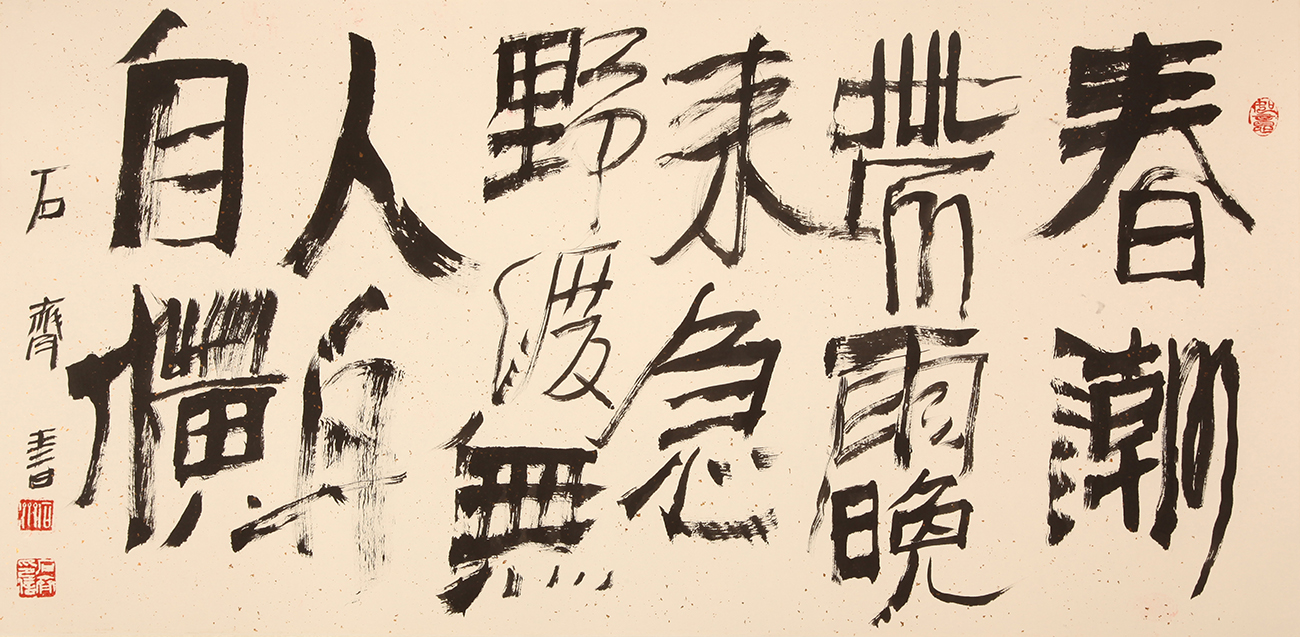 春潮
帶雨晚
來急
野渡無
人舟
自橫
石齊書